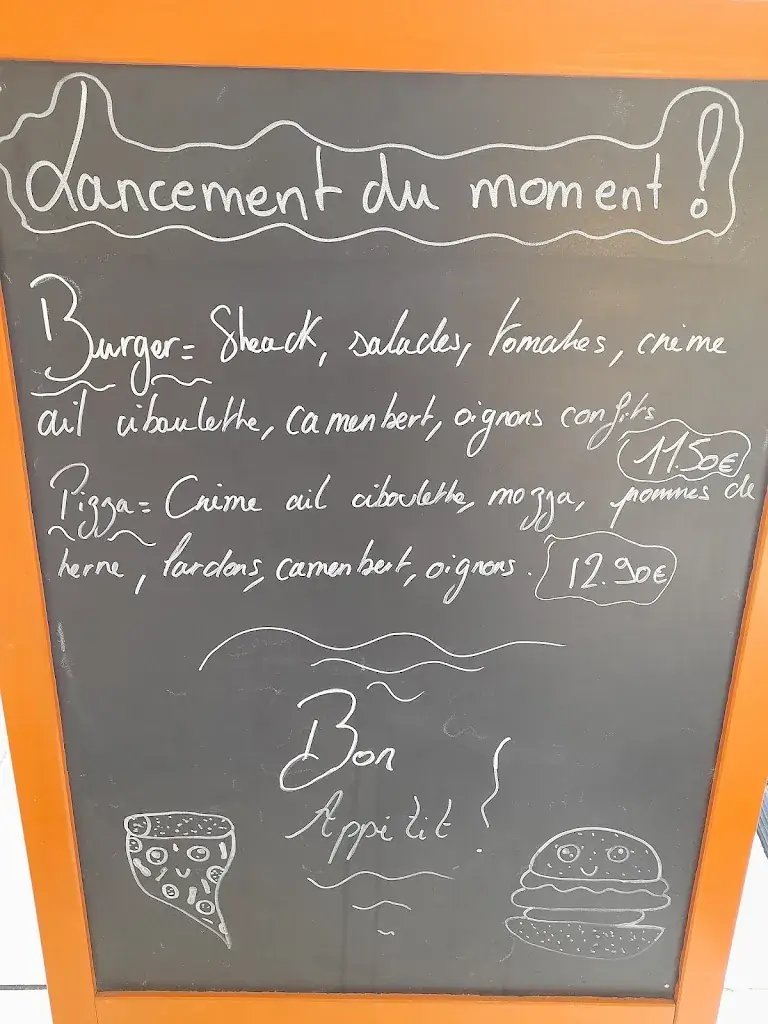 Lancement du moment !
Burger = Steack, salades, tomates, crème
ail ciboulette, camenbert, oignons confits
11.50€
Pizza = Crème ail ciboulette, mozza, pommes de
terre, lardons, camenbert, oignons.
12.90€
Bon
Appétit !